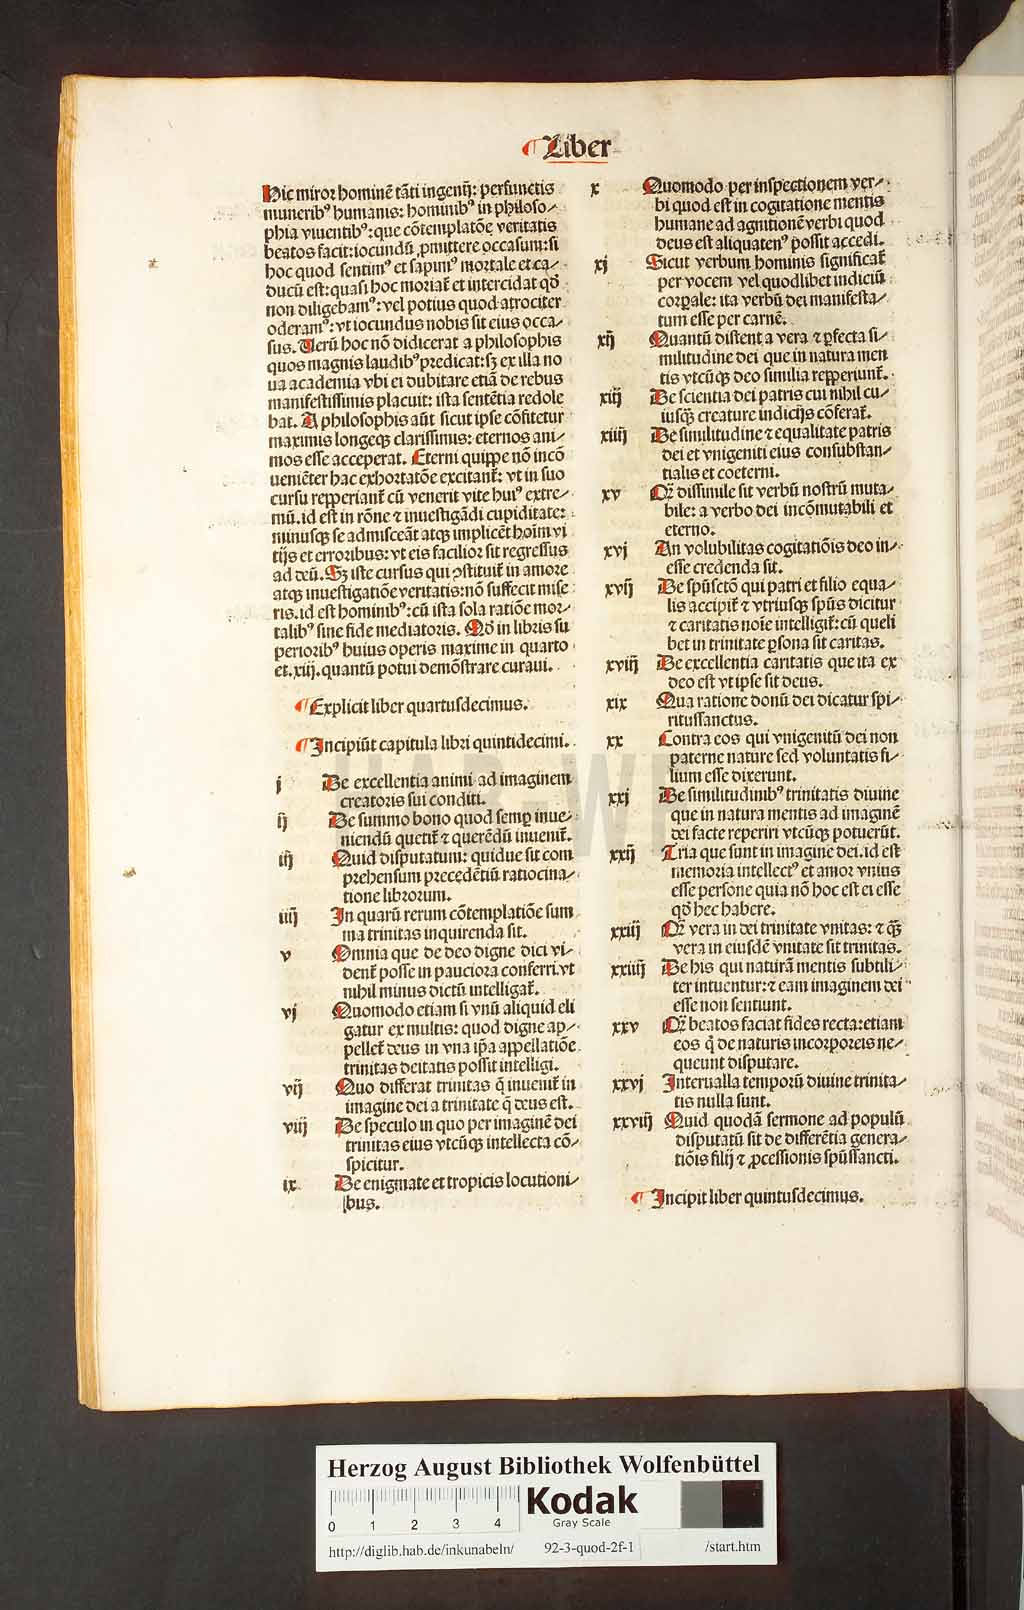 ¶Liber
Hic miror hominē tāti ingenij: perfunctis
muneribꝰ humanis: hominibꝰ in philoso⸗
phia viuentibꝰ: que cōtemplatōe veritatis
beatos facit: iocundū ꝓmittere occasum: si
hoc quod sentimꝰ et sapimꝰ mortale et ca⸗
ducū est: quasi hoc moriat̄ et intercidat qd̄
non diligebamꝰ: vel potius quod atrociter
oderamꝰ: vt iocundus nobis sit eius occa⸗
sus. Uerū hoc nō didicerat a philosophis
quos magnis laudibꝰ predicat: sꝫ ex illa no
ua academia vbi ei dubitare etiā de rebus
manifestissimis placuit: ista sentētia redole
bat. A philosophis aūt sicut ipse cōfitetur
maximis longeqꝫ clarissimus: eternos ani⸗
mos esse acceperat. Eterni quippe nō incō
ueniēter hac exhortatōe excitant̄: vt in suo
cursu reꝑperiant̄ cū venerit vite huiꝰ extre⸗
mū. id est in rōne ⁊ inuestigādi cupiditate:
minusqꝫ se admisceāt atqꝫ implicēt hoīm vi
tijs et erroribus: vt eis facilior sit regressus
ad deū. Sꝫ iste cursus qui ꝯstituit̄ in amore
atqꝫ inuestigatiōe veritatis: nō suffecit mise
ris. id est hominibꝰ: cū ista sola ratiōe mor⸗
talibꝰ sine fide mediatoris. Qd̄ in libris su
perioribꝰ huius operis maxime in quarto
et .xiij. quantū potui demōstrare curaui.
¶Explicit liber quartusdecimus.
¶Incipiūt capitula libri quintidecimi.
j De excellentia animi ad imaginem
creatoris sui conditi.
ij De summo bono quod semꝑ inue⸗
niendū querit̄ ⁊ querēdū inuenit̄.
iij Quid disputatum: quidue sit com
prehensum precedētiū ratiocina⸗
tione librorum.
iiij In quarū rerum cōtemplatiōe sum
ma trinitas inquirenda sit.
v Omnia que de deo digne dici vi⸗
dent̄ posse in pauciora conferri vt
nihil minus dictū intelligat̄.
vj Quomodo etiam si vnū aliquid eli
gatur ex multis: quod digne ap⸗
pellet̄ deus in vna ip̄a appellatiōe
trinitas deitatis possit intelligi.
vij Quo differat trinitas q̄ inuenit̄ in
imagine dei a trinitate q̄ deus est.
viij De speculo in quo per imaginē dei
trinitas eius vtcūqꝫ intellecta cō⸗
spicitur.
ix De enigmate et tropicis locutioni⸗
bus.
x Quomodo per inspectionem ver⸗
bi quod est in cogitatione mentis
humane ad agnitionē verbi quod
deus est aliquatenꝰ possit accedi.
xj Sicut verbum hominis significat̄
per vocem vel quodlibet indiciū
corꝑale: ita verbū dei manifesta⸗
tum esse per carnē.
xij Quantū distent a vera ⁊ ꝑfecta si⸗
militudine dei que in natura men
tis vtcūqꝫ deo similia reꝑperiunt̄.
xiij De scientia dei patris cui nihil cu⸗
iusqꝫ creature indicijs cōferat̄.
xiiij De similitudine ⁊ equalitate patris
dei et vnigeniti eius consubstan⸗
tialis et coeterni.
xv Qꝝ dissimile sit verbū nostrū muta⸗
bile: a verbo dei incōmutabili et
eterno.
xvj An volubilitas cogitatiōis deo in⸗
esse credenda sit.
xvij De spūsctō qui patri et filio equa⸗
lis accipit̄ ⁊ vtriusqꝫ spūs dicitur
⁊ caritatis noīe intelligit̄: cū queli
bet in trinitate ꝑsona sit caritas.
xviij De excellentia caritatis que ita ex
deo est vt ipse sit deus.
xix Qua ratione donū dei dicatur spi⸗
ritussanctus.
xx Contra eos qui vnigenitū dei non
paterne nature sed voluntatis fi⸗
lium esse dixerunt.
xxj De similitudinibꝰ trinitatis diuine
que in natura mentis ad imaginē
dei facte reperiri vtcūqꝫ potuerūt.
xxij Tria que sunt in imagine dei. id est
memoria intellectꝰ et amor vnius
esse persone quia nō hoc est ei esse
qd̄ hec habere.
xxiij Qꝝ vera in dei trinitate vnitas: ⁊ qꝫ̄
vera in eiusdē vnitate sit trinitas.
xxiiij De his qui naturā mentis subtili⸗
ter intuentur: ⁊ eam imaginem dei
esse non sentiunt.
xxv Qꝝ beatos faciat fides recta: etiam
eos q̄ de naturis incorporeis ne⸗
queunt disputare.
xxvj Interualla temporū diuine trinita⸗
tis nulla sunt.
xxviij Quid quodā sermone ad populū
disputatū sit de differētia genera⸗
tiōis filij ⁊ ꝓcessionis spūssancti.
¶Incipit liber quintusdecimus.
HAB-WF
Herzog August Bibliothek Wolfenbüttel
0 1 2 3 4
Kodak
Gray Scale
http://diglib.hab.de/inkunabeln/ 92-3-quod-2f-1 /start.htm